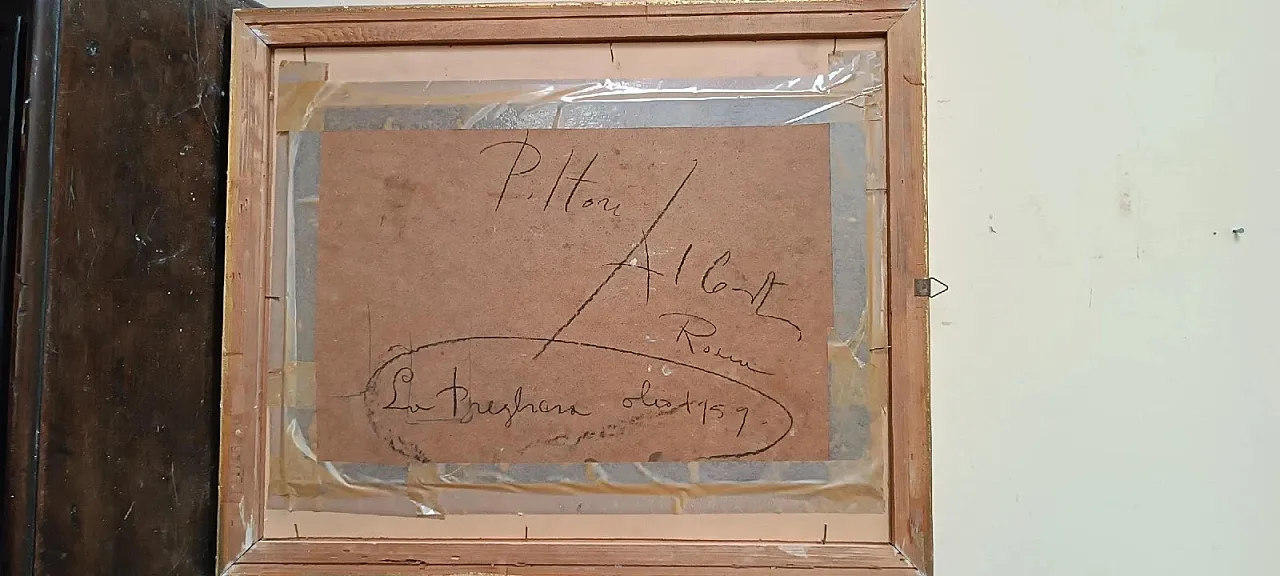 Pittore
Albert
Roma
La Preghiera olio 1959